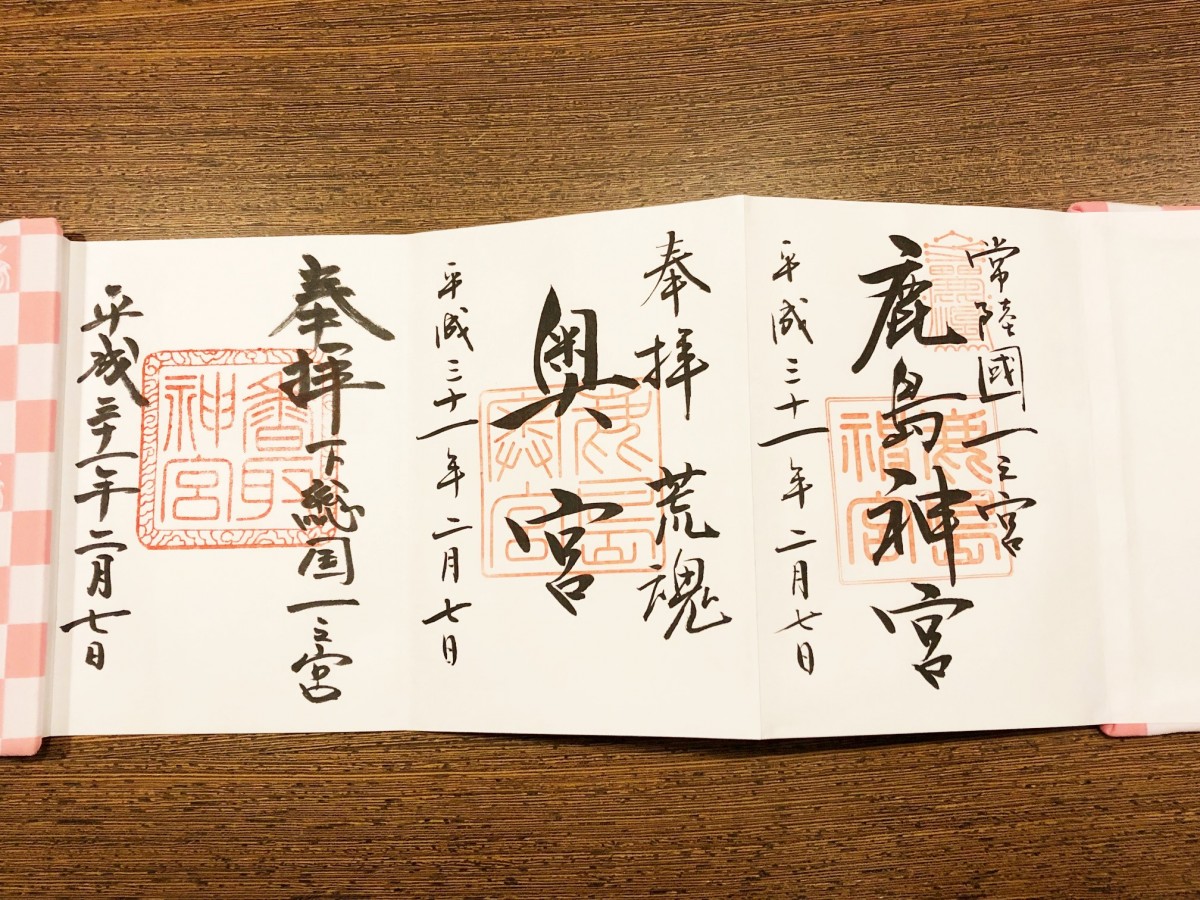 常陸國一之宮
鹿島神宮
鹿島
神宮
平成三十一年二月七日
奉拝 荒魂
奥宮
鹿島
奥宮
平成三十一年二月七日
奉拝 下総国一之宮
香取
神宮
平成三十一年二月七日